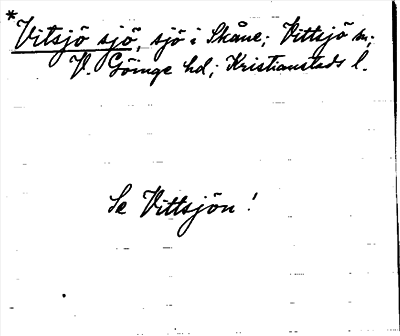 *Vitsjö sjö, sjö i Skåne; Vittsjö sn;
V. Göinge hd; Kristianstads l.
Se Vittsjön!